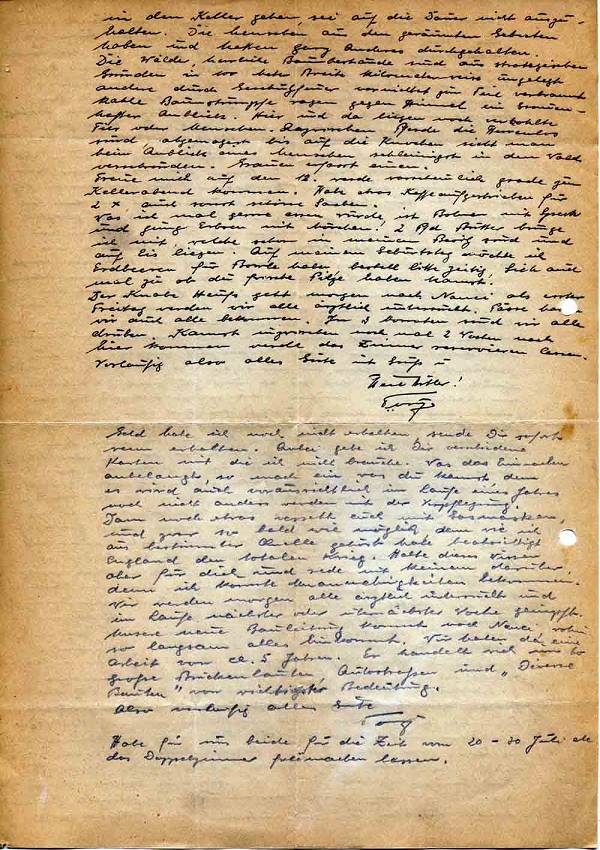 in den Keller gehen, sei auf die Dauer nicht auszu-
halten. Die Menschen aus den geräumten Gebieten
haben und hätten ganz Anderes durchgehalten.
Die Wälder, herrliche Baumbestände sind aus strategischen
Gründen in 100 Meter Breite kilometerweise umgelegt
andere durch Geschützfeuer vernichtet zum Teil verbrannt
kahle Baumstümpfe ragen gegen Himmel ein
Anblick. Hier und da liegen noch verkohlte
oder Menschen. Dazwischen Pferde die Herrenlos
sind abgemagert bis auf die Knochen sieht man
beim Anblick eines Menschen schleunigst in den Wald
verschwinden. Grauen erfasst einen.
Freue mich auf den 12. werde wahrscheinlich grade zum
Kellerabend kommen. Habe etwas Kaffee aufgetrieben für
2 x und sonst schöne Sachen.
Was ich mal gerne essen würde, ist Bohnen mit Speck
und junge Erbsen mit 2 Pfd Butter bringe
ich mit, welche schon in meinem Besitz sind und
auf Eis liegen. Auf meinem Geburtstag möchte ich
Erdbeeren für Bowle haben bestell bitte zeitig, Sieh auch
mal zu ob du frische Pilze haben kannst.
Der Knabe geht morgen nach Nancy als erster
Freitag werden wir alle ärztlich untersucht. Pässe haben
wir auch alle bekommen. In 4 Wochen sind wir alle
drüben. Kannst inzwischen noch mal 2 Wochen nach
hier kommen werde das Zimmer reservieren lassen.
Vorläufig also alles Gute mit Gruß u
Heil Hitler!
Geld habe ich noch nicht erhalten, sende Dir sofort
wenn erhalten. Anbei gebe ich Dir verschiedene
Karten mit die ich nicht brauche. Was das Einmachen
anbelangt, so mach ein was du kannst, denn
es wird auch voraussichtlich im Laufe eines Jahres
noch nicht anders werden mit der Verpflegung.
Dann noch etwas versieht euch mit Gasmasken,
und zwar so bald wie möglich denn wie ich
aus bestimmter Quelle gehört habe beabsichtigt
England den totalen Krieg. Halte dieses
aber für dich und rede mit keinem darüber,
denn ich könnte Unannehmlichkeiten bekommen.
Wir werden morgen alle ärztlich untersucht und
im Laufe nächster oder übernächster Woche geimpft.
Unsere neue Bauleitung kommt nach Nancy wohin
so langsam alles hinkommt. Wir haben da eine
Arbeit von ca. 5 Jahren. Es handelt sich um
große Brückenbauten, Autostraßen und „Diverse
Bauten" von wichtigster Bedeutung.
Also vorläufig alles Gute
Habe für uns beide für die Zeit vom 20 – 30 Juli
das Doppelzimmer freimachen lassen.